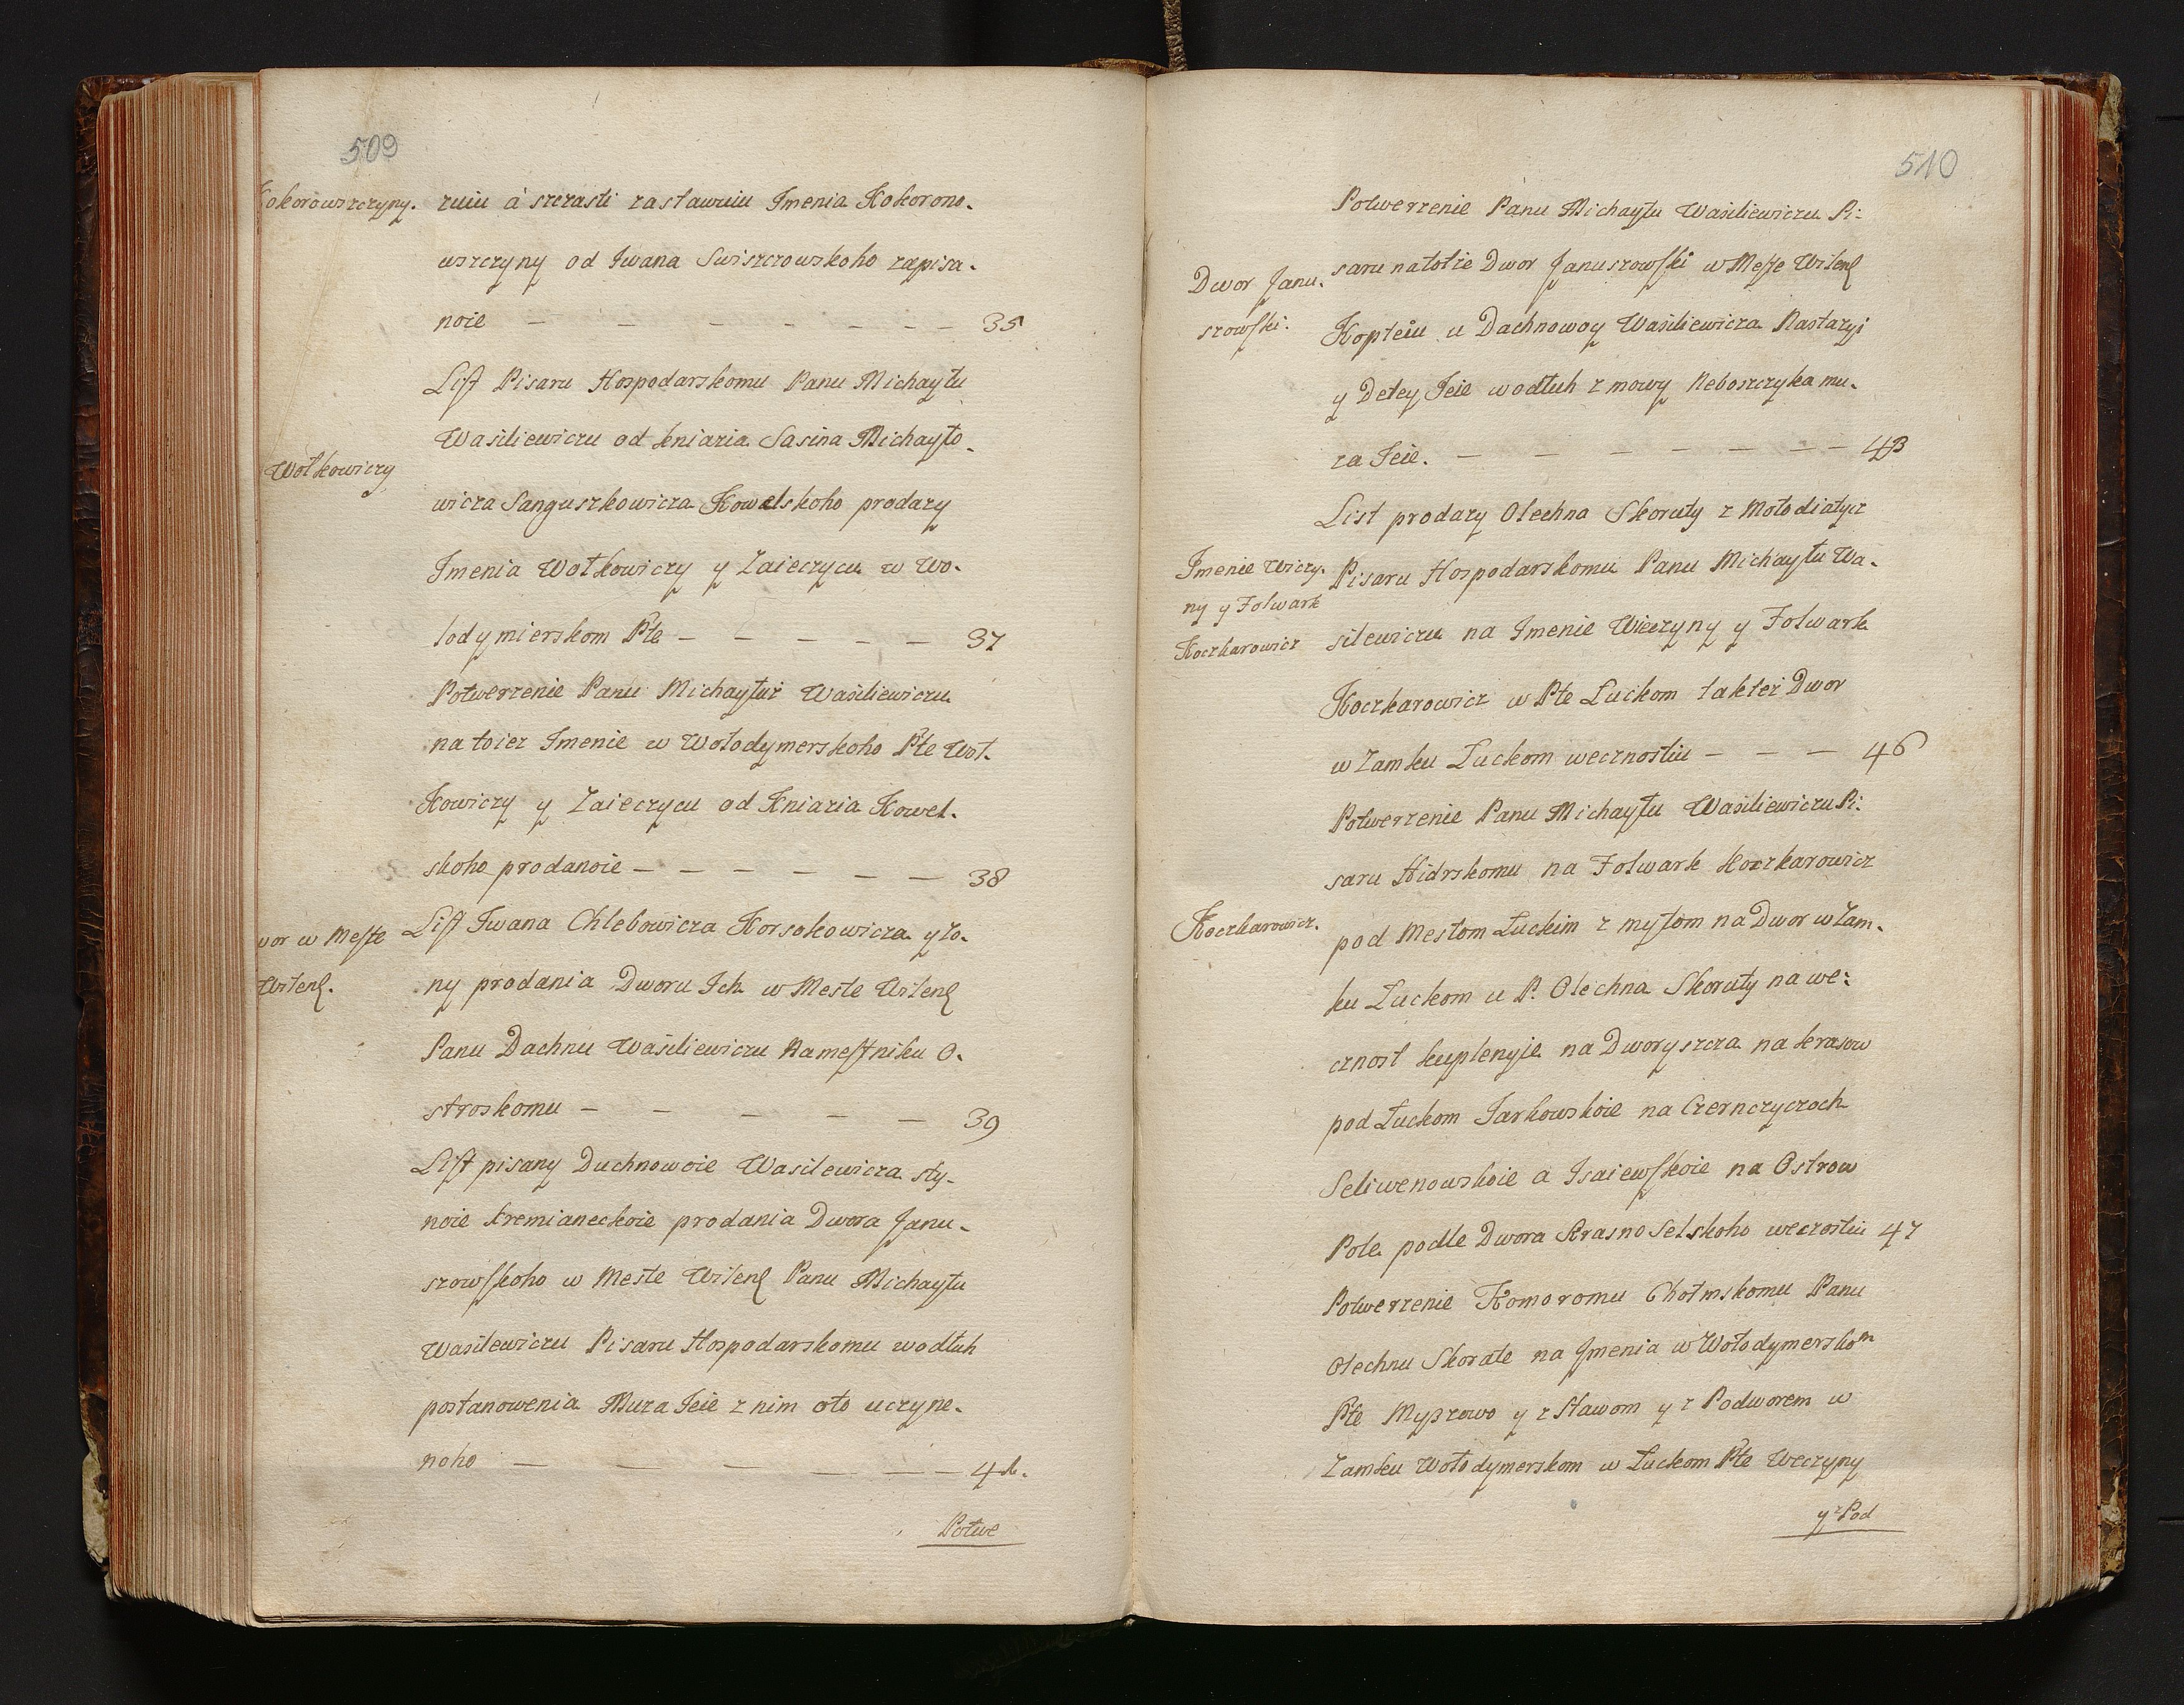 509
Kokorowszczyny.
zuiu á szczasti zastawuiu Imenia Kokorono-
wszczyny od Iwana Swiszczowskoho zapisa-
noie — — — — — — — 35
List Pisaru Hospodarskomu Panu Michayłu
Wasiliewiczu od kniazia Sasina Michayło-
Wołkowiczy
wicza Sanguszkowicza Kowelskoho prodazy
Imenia Wołkowiczy y Zaieczycu w Wo-
lodymierskom Pte — — — — — 37
Potwerzenie Panu Michayłuż Wasiliewiczu
na toiez Imenie w Wołodymerskoho Pte Woł-
Kowiczy y Zaieczycu od Kniazia Kowel-
skoho prodanoie — — — — — — 38
wor w Meste
Wilenſ.
List Iwana Chlebowicza Korsokowicza y Zo-
ny prodania Dworu Ich w Meste Wilenſ
Panu Dachnu Wasiliewiczu Namestniku O-
stroskomu — — — — — 39
List pisany Duchnowoie Wasilewicza sty-
noie kremianeckoie prodania Dwora Janu-
szowskoho w Meste Wilenſ Panu Michayłu
Wasilewiczu Pisaru Hospodarskomu wodłuh
postanowenia Muza Ieie z nim oto uczyne-
noho — — — — — — 4
Potwe
510
Potwerzenie Panu Michayłu Wasiliewiczu Pi:
Dwor Janu-
szowski.
saru natotie Dwor Januszowski w Meste Wilenſ
Kopleiu u Dachnowoy Wasiliewicza Nastazyi
y Detey Ieie wodłuh zmowy Neboszczyka mu-
za Ieie. — — — — — — — 43
List prodazy Olechna Skoruty z Mołodiatycz
Imenie Wiczy-
ny y Folwark
Koczkarowicz
Pisaru Hospodarskomu Panu Michayłu Wa-
silewiczu na Imenie Wieczyny y Folwark
Koczkarowicz w Pte Łuckom takteż Dwor
w Zamku Łuckom wecznostiu — — — 46
Potwerzenie Panu Michayłu Wasiliewiczu Pi:
saru Hidrskomu na Folwark Koczkarowicz
Koczkarowicz.
pod Mestom Łuckim z mytom na Dwor w Zam-
ku Łuckom u P. Olechna Skoruty na we:
cznost kuplenyie na Dworyszcza na krasow
pod Łuckom Jarkowskoie na Czernczyczoch
Seliwenowskoie a Isaiewskoie na Ostrow
Pole podle Dwora Krasno Selskoho weczostiu 47
Potwerzenie Komoromu Chołmskomu Panu
Olechnu Skorate na Jmenia w Wołodymerskom
Pte Myzowo y z Stawom y z Podworem w
Zamku Wołodymerskom w Łuckom Pte Weczyny
y z Pod